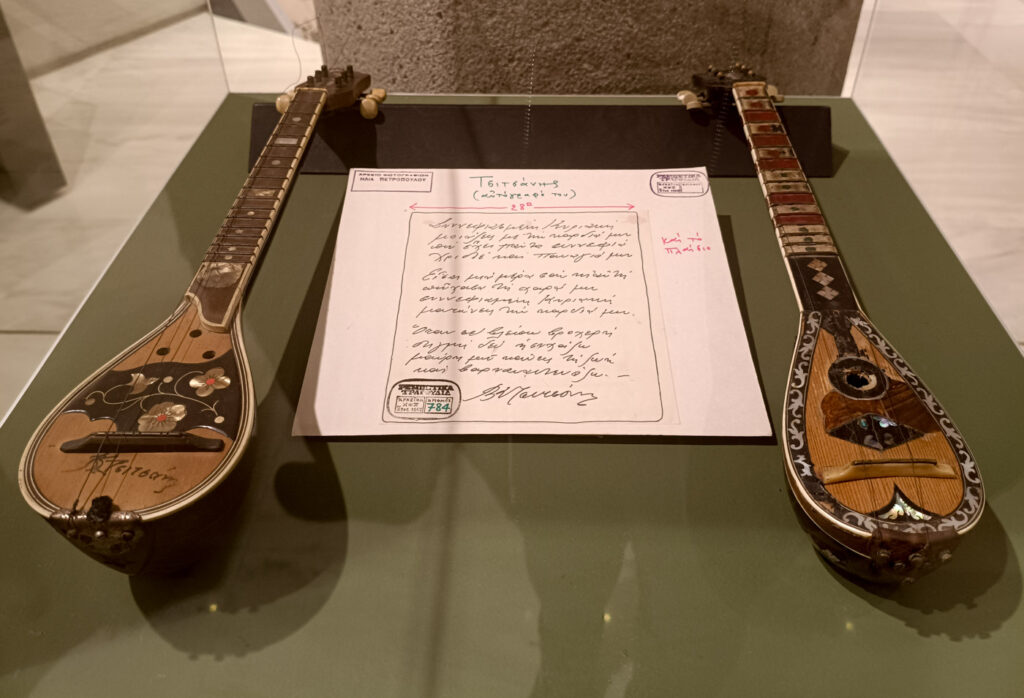 ΑΡΧΕΙΟ ΦΩΤΟΓΡΑΦΙΩΝ
ΗΛΙΑ ΠΕΤΡΟΠΟΥΛΟΥ
Τσιτσάνης
(αὐτόγραφό του)
ΡΕΜΠΕΤΙΚΑ
ΤΡΑΓΟΥΔΙΑ
28º
καὶ τὸ
πλαίσιο
Συννεφιασμένη Κυριακή
μοιάζεις με την καρδιά μου
που έχει πάντα συννεφιά
Χριστέ και Παναγιά μου
Είσαι μια μέρα σαν κι αυτή
πώχασα τη χαρά μου
συννεφιασμένη Κυριακή
ματώνεις την καρδιά μου.
Όταν σε βλέπω βροχερή
στιγμή δεν ησυχάζω
μαύρη μου κάνεις τη ζωή
και βαρυαναστενάζω. —
ΡΕΜΠΕΤΙΚΑ
ΤΡΑΓΟΥΔΙΑ
784
ΒΤσιτσάνης
ΒΤσιτσάνης